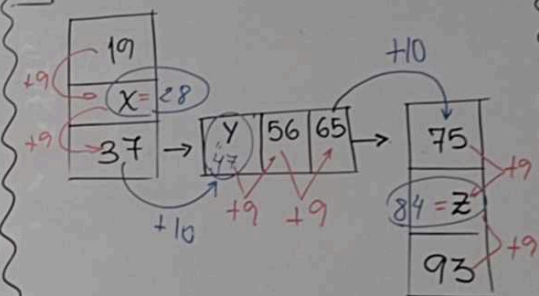 19
+9
X=28
+9
37
+10
Y
47
56
65
+9
+9
+10
75
+9
84=Z
+9
93